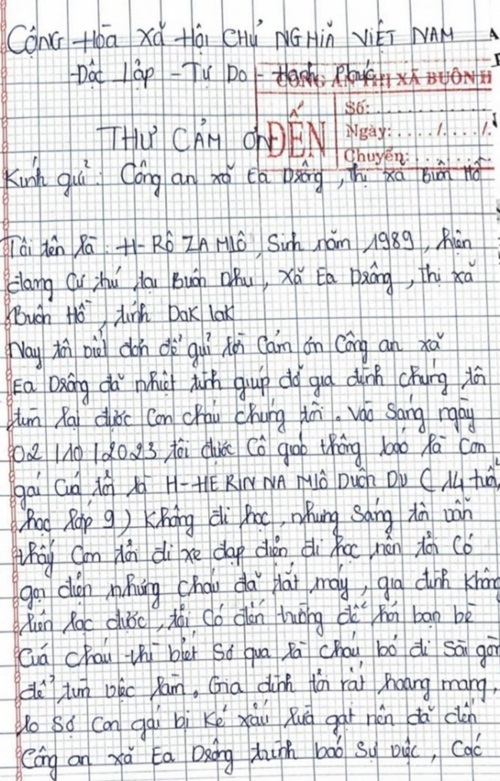 CỘNG HÒA XÃ HỘI CHỦ NGHĨA VIỆT NAM
Độc lập - Tự Do - Hạnh Phúc
CÔNG AN THỊ XÃ BUÔN H
ĐẾN
Số:
Ngày: ..../..../
Chuyển:
THƯ CẢM ƠN
Kính gửi: Công an xã Ea Drông, thị xã Buôn Hồ
Tôi tên là: H- RÔ ZA MLÔ, Sinh năm 1989, hiện
đang cư trú tại Buôn Dhu, xã Ea Drông, thị xã
Buôn Hồ, tỉnh Dak lak
Nay tôi viết đơn để gửi lời cảm ơn Công an xã
Ea Drông đã nhiệt tình giúp đỡ gia đình chúng tôi
tìm lại được con cháu chúng tôi. Vào sáng ngày
02/10/2023, tôi được cô giáo thông báo là con
gái của tôi là H-HERIN NA MLÔ DUÔN DU (14 tuổi,
học lớp 9) không đi học, nhưng sáng tôi vẫn
thấy con tôi đi xe đạp điện đi học nên tôi có
gọi điện nhưng cháu đã tắt máy, gia đình không
liên lạc được, tôi có đến trường để hỏi bạn bè
của cháu thì biết sơ qua là cháu bỏ đi Sài gòn
để tìm việc làm. Gia đình tôi rất hoang mang,
lo sợ con gái bị kẻ xấu lừa gạt nên đã đến
Công an xã Ea Drông trình báo sự việc, Các